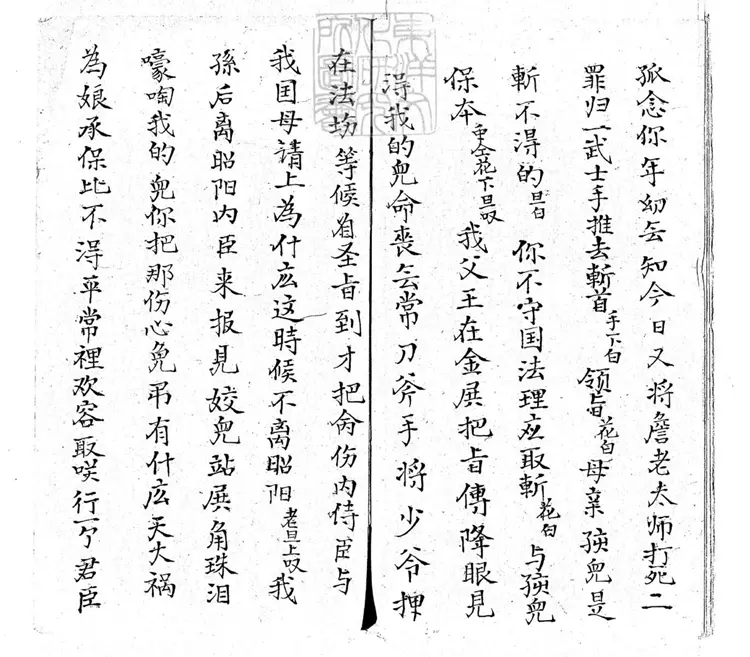 孤念你年幼无知今日又将詹老夫师打死二
罪归一武士手推去斬首手下白领旨花白母亲孩皃是
斬不得的旦白你不守国法理应取斬花白与孩皃
保本重仝花下旦叹我父王在金展把旨傳降眼見
淂我的皃命喪无常刀斧手将少爷押
在法坊等候有圣旨到才把命伤内侍臣与
我国母請上為什広这時候不离昭阳老旦上叹我
孫后离昭阳内臣来报見姣皃站展角珠泪
嚎啕我的皃你把那伤心免弔有什広天大祸
為娘承保比不淂平常裡欢容取咲行一个君臣